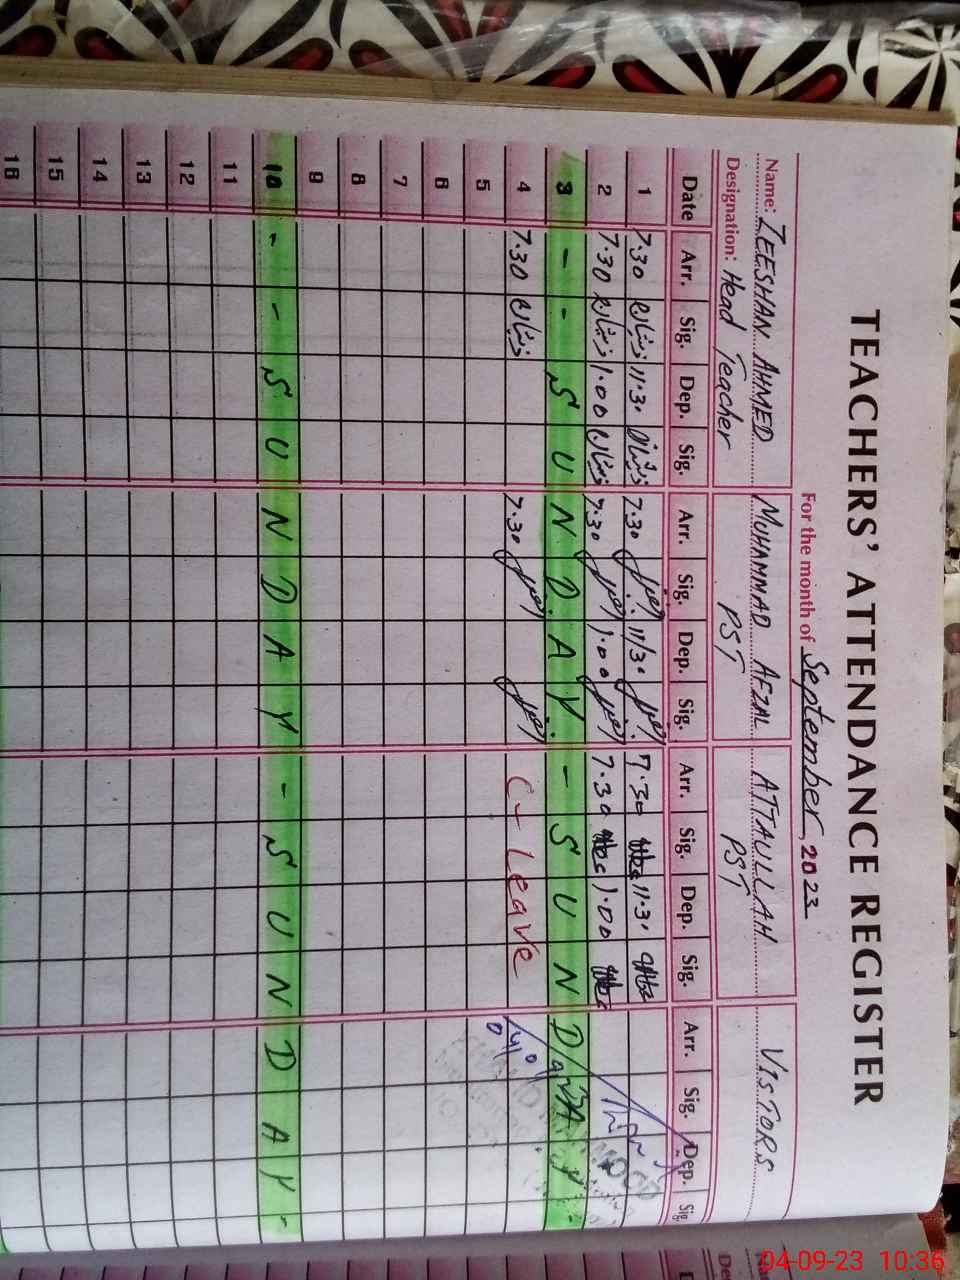 TEACHERS' ATTENDANCE REGISTER
For the month of September, 2023
Name: ZEESHAN AHMED MUHAMMAD AFZAL ATTAULLAH VISTORS
Designation: Head Teacher PST PST
Date Arr. Sig. Dep. Sig. Arr. Sig. Dep. Sig. Arr. Sig. Dep. Sig. Arr. Sig. Dep. Sig.
1 7.30 ذیشان 11.30 ذیشان 7.30 افضل 11/30 افضل 7.30 11.30
2 7.30 ذیشان 1.00 ذیشان 7.30 افضل 1.00 افضل 7.30 1.00
3 - - S U N D A Y - S U N D A Y -
4 7.30 ذیشان 7.30 افضل افضل C- Leave
5
6
7
8
9
10 - - S U N D A Y - S U N D A Y -
11
12
13
14
15
16
04-09-23 10:36